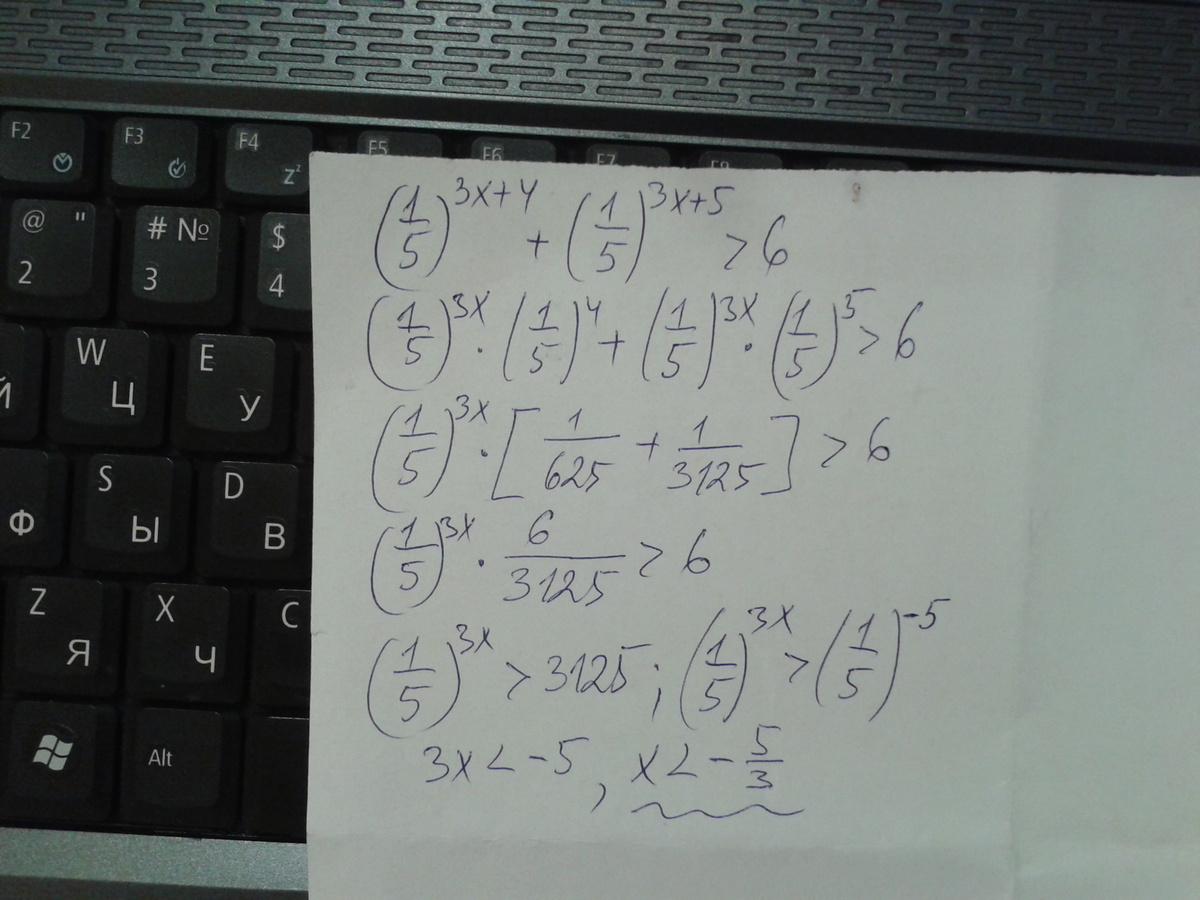 F2 F3 F4 F5 F6 F7 F8
@ " 2 # № 3 $ 4
Й W Ц E У
Ф S Ы D В
Z Я X Ч C
Alt
(1/5)^(3x+4) + (1/5)^(3x+5) > 6
(1/5)^(3x) · (1/5)^4 + (1/5)^(3x) · (1/5)^5 > 6
(1/5)^(3x) · [1/625 + 1/3125] > 6
(1/5)^(3x) · 6/3125 > 6
(1/5)^(3x) > 3125 ; (1/5)^(3x) > (1/5)^(-5)
3x < -5 , x < - 5/3